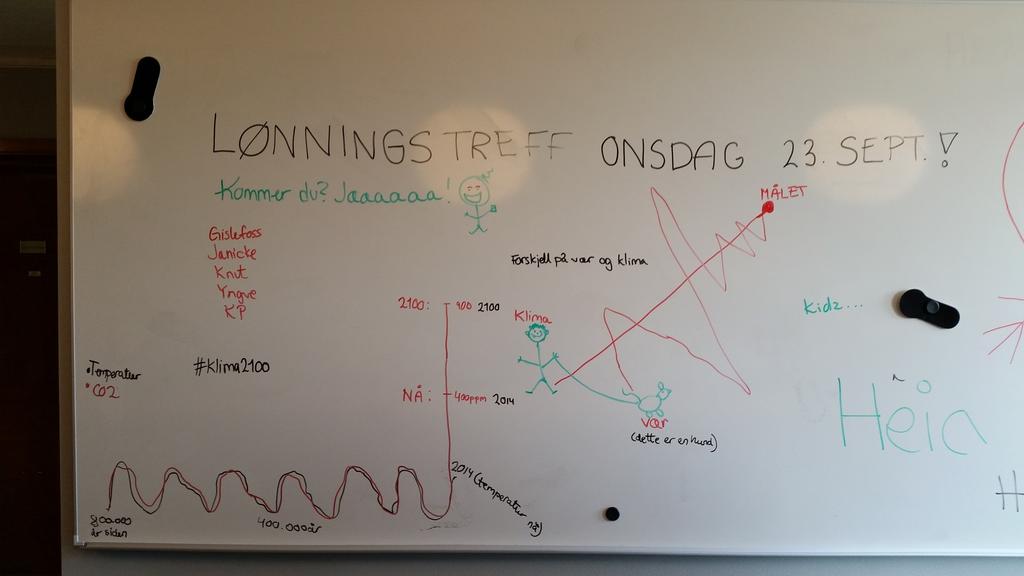 LØNNINGSTREFF ONSDAG 23. SEPT.!
Kommer du? Jaaaaaaa!
Gislefoss
Janicke
Knut
Yngve
KP
#Klima2100
•Temperatur
•CO2
800.000
år siden
400.000 år
2100: 900 2100
NÅ: 400ppm 2014
2014 (temperatur nå)
Forskjell på vær og klima
MÅLET
Klima
vær
(dette er en hund)
Kidz...
Heia
H